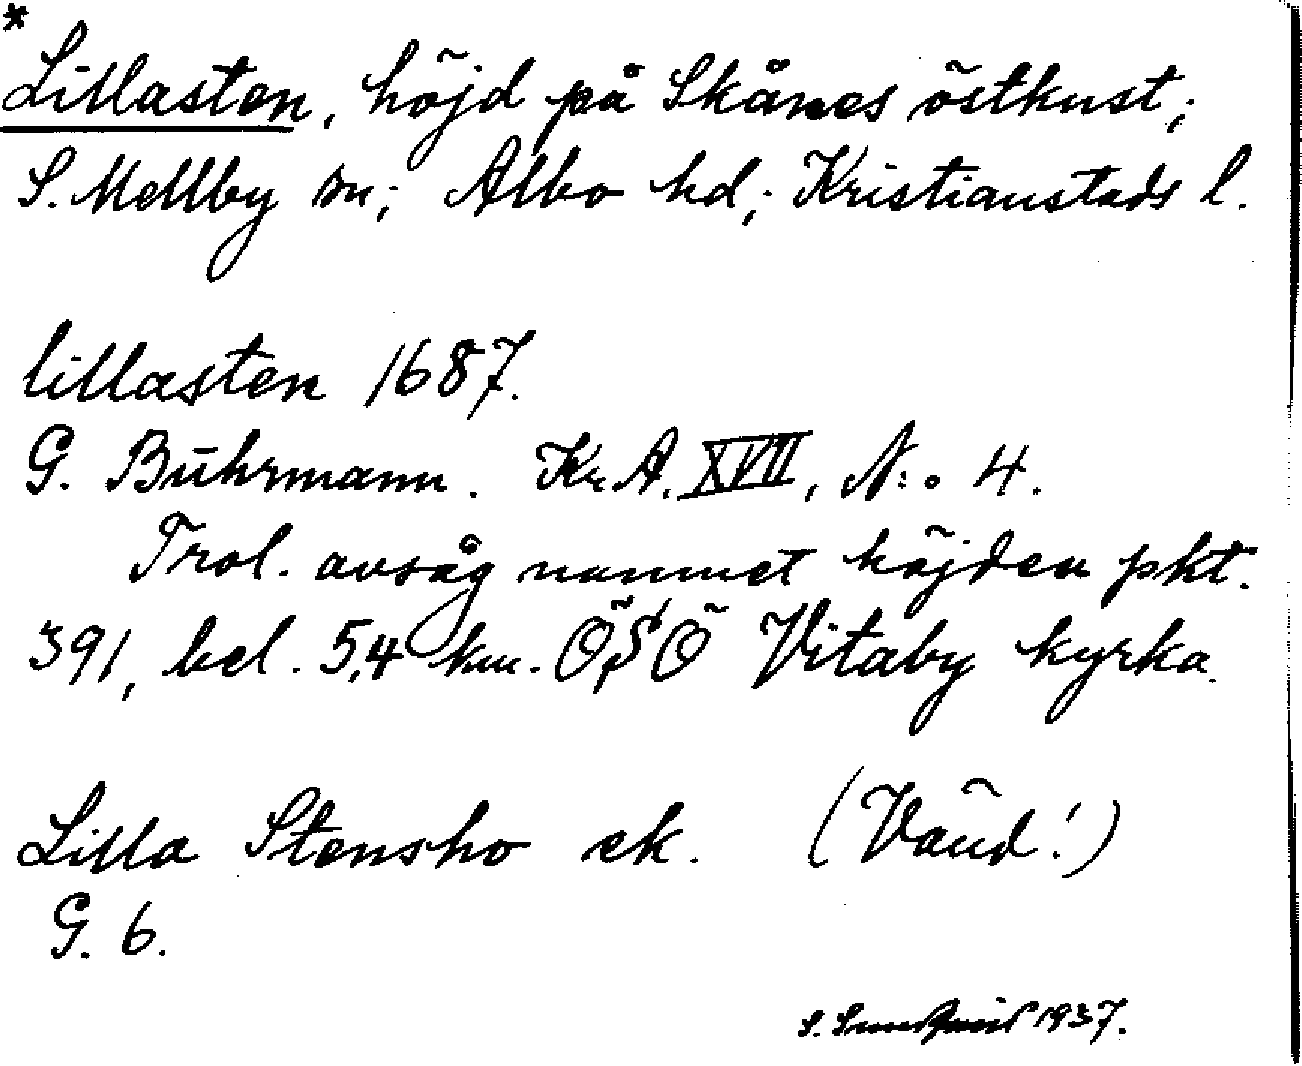 *
Lillasten, höjd på Skånes östkust;
S. Mellby sn; Albo hd; Kristianstads l.
lillasten 1687.
G. Buhrmann. Kr. A. XVII, N:o 4.
Trol. avsåg namnet höjden pkt.
391, bel. 5,4 km. ÖSÖ Vitaby kyrka.
Lilla Stensho ek. (Vänd!)
G. 6.
S. 1937.